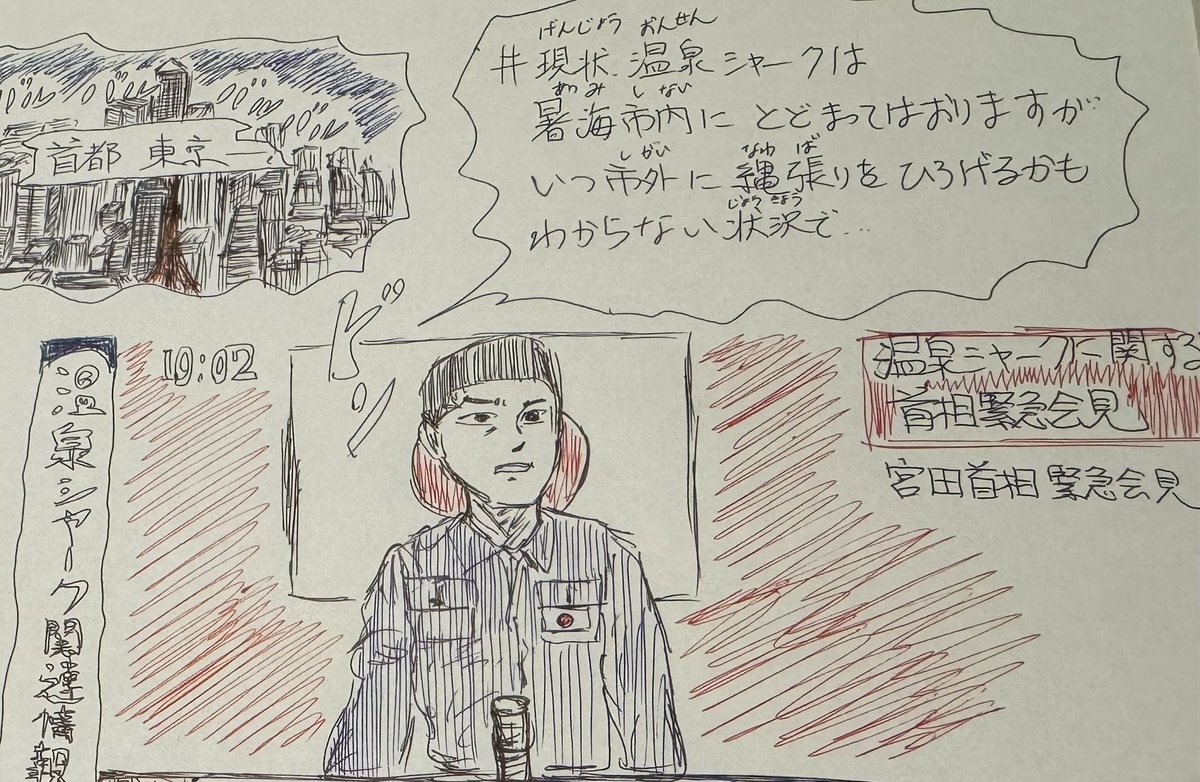 バル バル バル バル
首都 東京ー
♯現状 温泉シャークは
げんじょう おんせん
暑海市内に とどまってはおりますが…
あつみ しない
いつ市外に縄張りをひろげるかも
しがい なわ ば
わからない状況で…
じょうきょう
ドン
19:02
温泉シャーク関連情報
温泉シャークに関する
首相緊急会見
宮田首相緊急会見